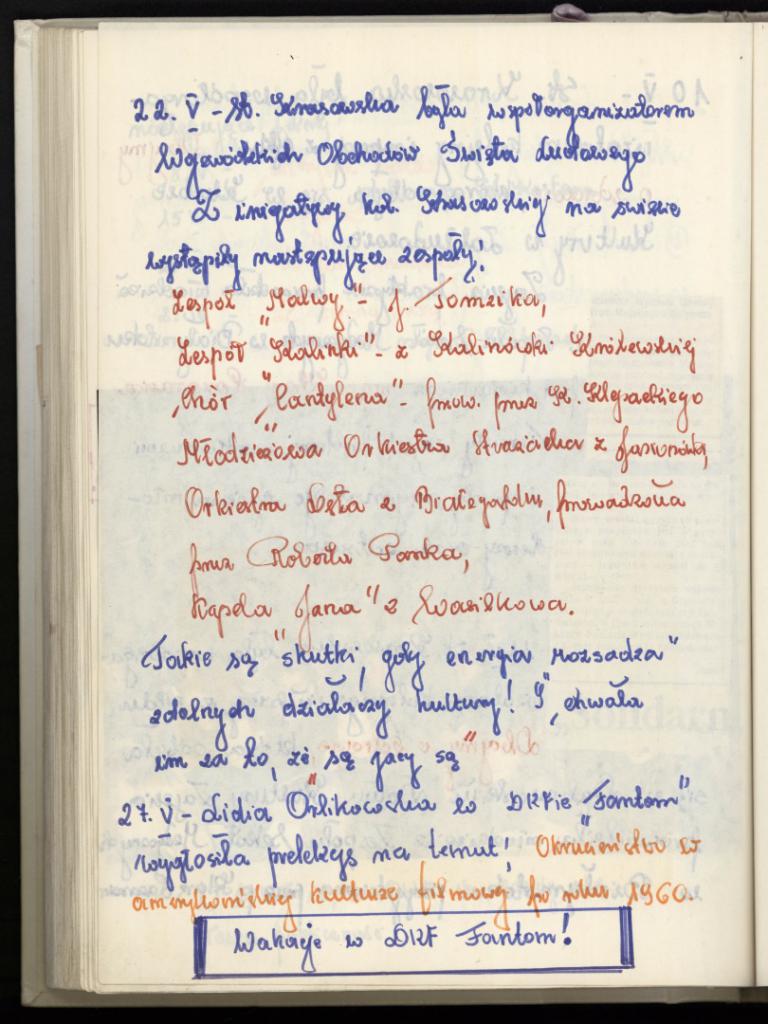 22. V - St. Krasowska była współorganizatorem
Wojewódzkich Obchodów Święta Ludowego
Z inicjatywy kol. Krasowskiej na święcie
wystąpiły następujące zespoły:
Zespół "Malwy" - f. Tomzika,
Zespół "Kalinki" - z Kalinówki Królewskiej
Chór "Cantylena" - prow. przez K. Klepackiego
Młodzieżowa Orkiestra Strażacka z Jasionówki,
Orkiestra Dęta z Białegostoku, prowadzona
przez Roberta Panka,
Kapela "Jana" z Wasilkowa.
Takie są "skutki, gdy energia rozsadza"
zdolnych działaczy kultury! I "chwała
im za to, że są jacy są"
27. V - Lidia Orlikowska w DKFie "Fantom"
wygłosiła prelekcję na temat: "Okrucieństwo w
amerykańskiej kulturze filmowej po roku 1960.
Wakacje w DKF Fantom!